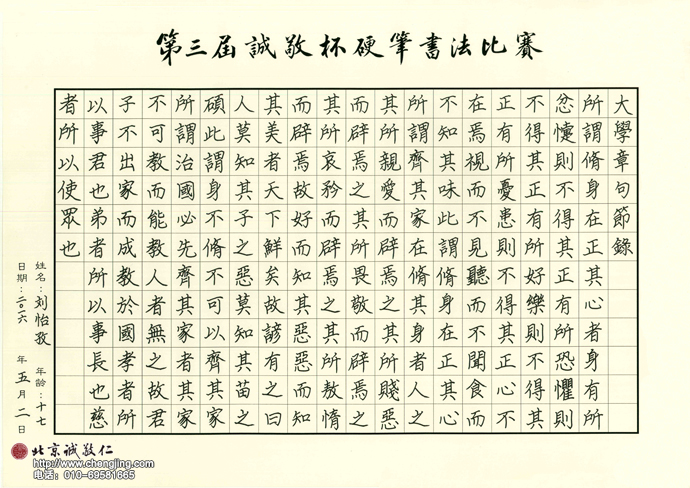 第三屆誠敬杯硬筆書法比賽
大學章句節錄
所謂脩身在正其心者身有所
忿懥則不得其正有所恐懼則
不得其正有所好樂則不得其
正有所憂患則不得其正心不
在焉視而不見聽而不聞食而
不知其味此謂脩身在正其心
所謂齊其家在脩其身者人之
其所親愛而辟焉之其所賤惡
而辟焉之其所畏敬而辟焉之
其所哀矜而辟焉之其所敖惰
而辟焉故好而知其惡惡而知
其美者天下鮮矣故諺有之曰
人莫知其子之惡莫知其苗之
碩此謂身不脩不可以齊其家
所謂治國必先齊其家者其家
不可教而能教人者無之故君
子不出家而成教於國孝者所
以事君也弟者所以事長也慈
者所以使眾也
姓名:刘怡孜 年龄:十七
日期:二〇一六年五月二日
北京诚敬仁
http://www.chengjing.com
电话:010-69581665